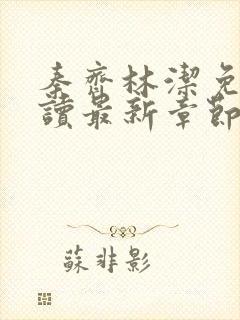 秦齊林潔免
讀最新章節
蘇非影